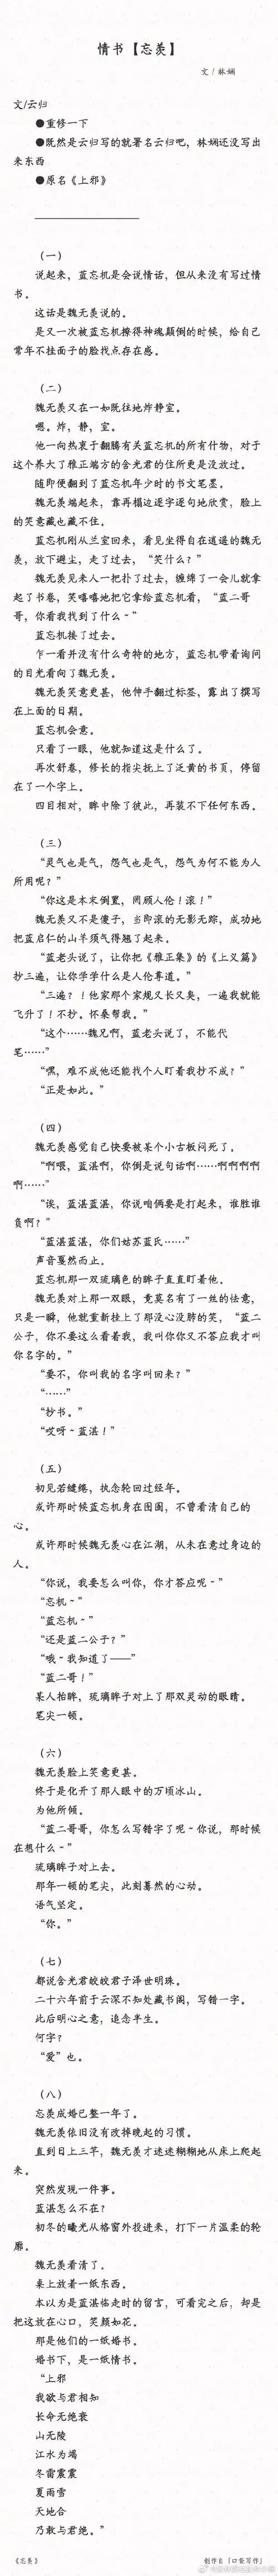 情书【忘羡】
文/林娴
文/云归
●重修一下
●既然是云归写的就署名云归吧，林娴还没写出
来东西
●原名《上邪》
（一）
说起来，蓝忘机是会说情话，但从来没有写过情
书。
这话是魏无羡说的。
是又一次被蓝忘机撩得神魂颠倒的时候，给自己
常年不挂面子的脸找点存在感。
（二）
魏无羡又在一如既往地炸静室。
嗯。炸，静，室。
他一向热衷于翻腾有关蓝忘机的所有什物，对于
这个养大了雅正端方的含光君的住所更是没放过。
随即便翻到了蓝忘机年少时的书文笔墨。
魏无羡端起来，靠再榻边逐字逐句地欣赏，脸上
的笑意藏也藏不住。
蓝忘机刚从兰室回来，看见坐得自在逍遥的魏无
羡，放下避尘，走了过去，“笑什么？”
魏无羡见来人一把扑了过去，缠绵了一会儿就拿
起了书卷，笑嘻嘻地把它拿给蓝忘机看，“蓝二哥
哥，你看我找到了什么~”
蓝忘机接了过去。
乍一看并没有什么奇特的地方，蓝忘机带着询问
的目光看向了魏无羡。
魏无羡笑意更甚，他伸手翻过标签，露出了撰写
在上面的日期。
蓝忘机会意。
只看了一眼，他就知道这是什么了。
再次舒卷，修长的指尖抚上了泛黄的书页，停留
在了一个字上。
四目相对，眸中除了彼此，再装不下任何东西。
（三）
“灵气也是气，怨气也是气，怨气为何不能为人
所用呢？”
“你这是本末倒置，罔顾人伦！滚！”
魏无羡又不是傻子，当即滚的无影无踪，成功地
把蓝启仁的山羊须气得翘了起来。
“蓝老头说了，让你把《雅正集》的《上义篇》
抄三遍，让你学学什么是人伦尊道。”
“三遍？！他家那个家规又长又臭，一遍我就能
飞升了！不抄。怀桑帮我。”
“这个……魏兄啊，蓝老头说了，不能代
笔……”
“嘿，难不成他还能找个人盯着我抄不成？”
“正是如此。”
（四）
魏无羡感觉自己快要被某个小古板闷死了。
“啊喂，蓝湛啊，你倒是说句话啊……啊啊啊啊
啊……”
“诶，蓝湛蓝湛，你说咱俩要是打起来，谁胜谁
负啊？”
“蓝湛蓝湛，你们姑苏蓝氏……”
声音戛然而止。
蓝忘机那一双琉璃色的眸子直直盯着他。
魏无羡对上那一双眼，竟莫名有了一丝的怯意，
只是一瞬，他就重新挂上了那没心没肺的笑，“蓝二
公子，你不要这么看着我，我叫你你又不答应我才叫
你名字的。”
“要不，你叫我的名字叫回来？”
“……”
“抄书。”
“哎呀~蓝湛！”
（五）
初见若缱绻，执念轮回过经年。
或许那时候蓝忘机身在囹圄，不曾看清自己的
心。
或许那时候魏无羡心在江湖，从未在意过身边的
人。
“你说，我要怎么叫你，你才答应呢~”
“忘机~”
“蓝忘机~”
“还是蓝二公子？”
“哦~我知道了——”
“蓝二哥！”
某人抬眸，琉璃眸子对上了那双灵动的眼睛。
笔尖一顿。
（六）
魏无羡脸上笑意更甚。
终于是化开了那人眼中的万顷冰山。
为他所倾。
“蓝二哥哥，你怎么写错字了呢~你说，那时候
在想什么~”
琉璃眸子对上去。
那年一顿的笔尖，此刻蓦然的心动。
语气坚定。
“你。”
（七）
都说含光君皎皎君子泽世明珠。
二十六年前于云深不知处藏书阁，写错一字。
此后明心之意，追念半生。
何字？
“爱”也。
（八）
忘羡成婚已整一年了。
魏无羡依旧没有改掉晚起的习惯。
直到日上三竿，魏无羡才迷迷糊糊地从床上爬起
来。
突然发现一件事。
蓝湛怎么不在？
初冬的曦光从格窗外投进来，打下一片温柔的轮
廓。
魏无羡看清了。
桌上放着一纸东西。
本以为是蓝湛临走时的留言，可看完之后，却是
把这放在心口，笑颜如花。
那是他们的一纸婚书。
婚书下，是一纸情书。
“上邪
我欲与君相知
长命无绝衰
山无陵
江水为竭
冬雷震震
夏雨雪
天地合
乃敢与君绝。”
《忘羡》
创作自「口袋写作」